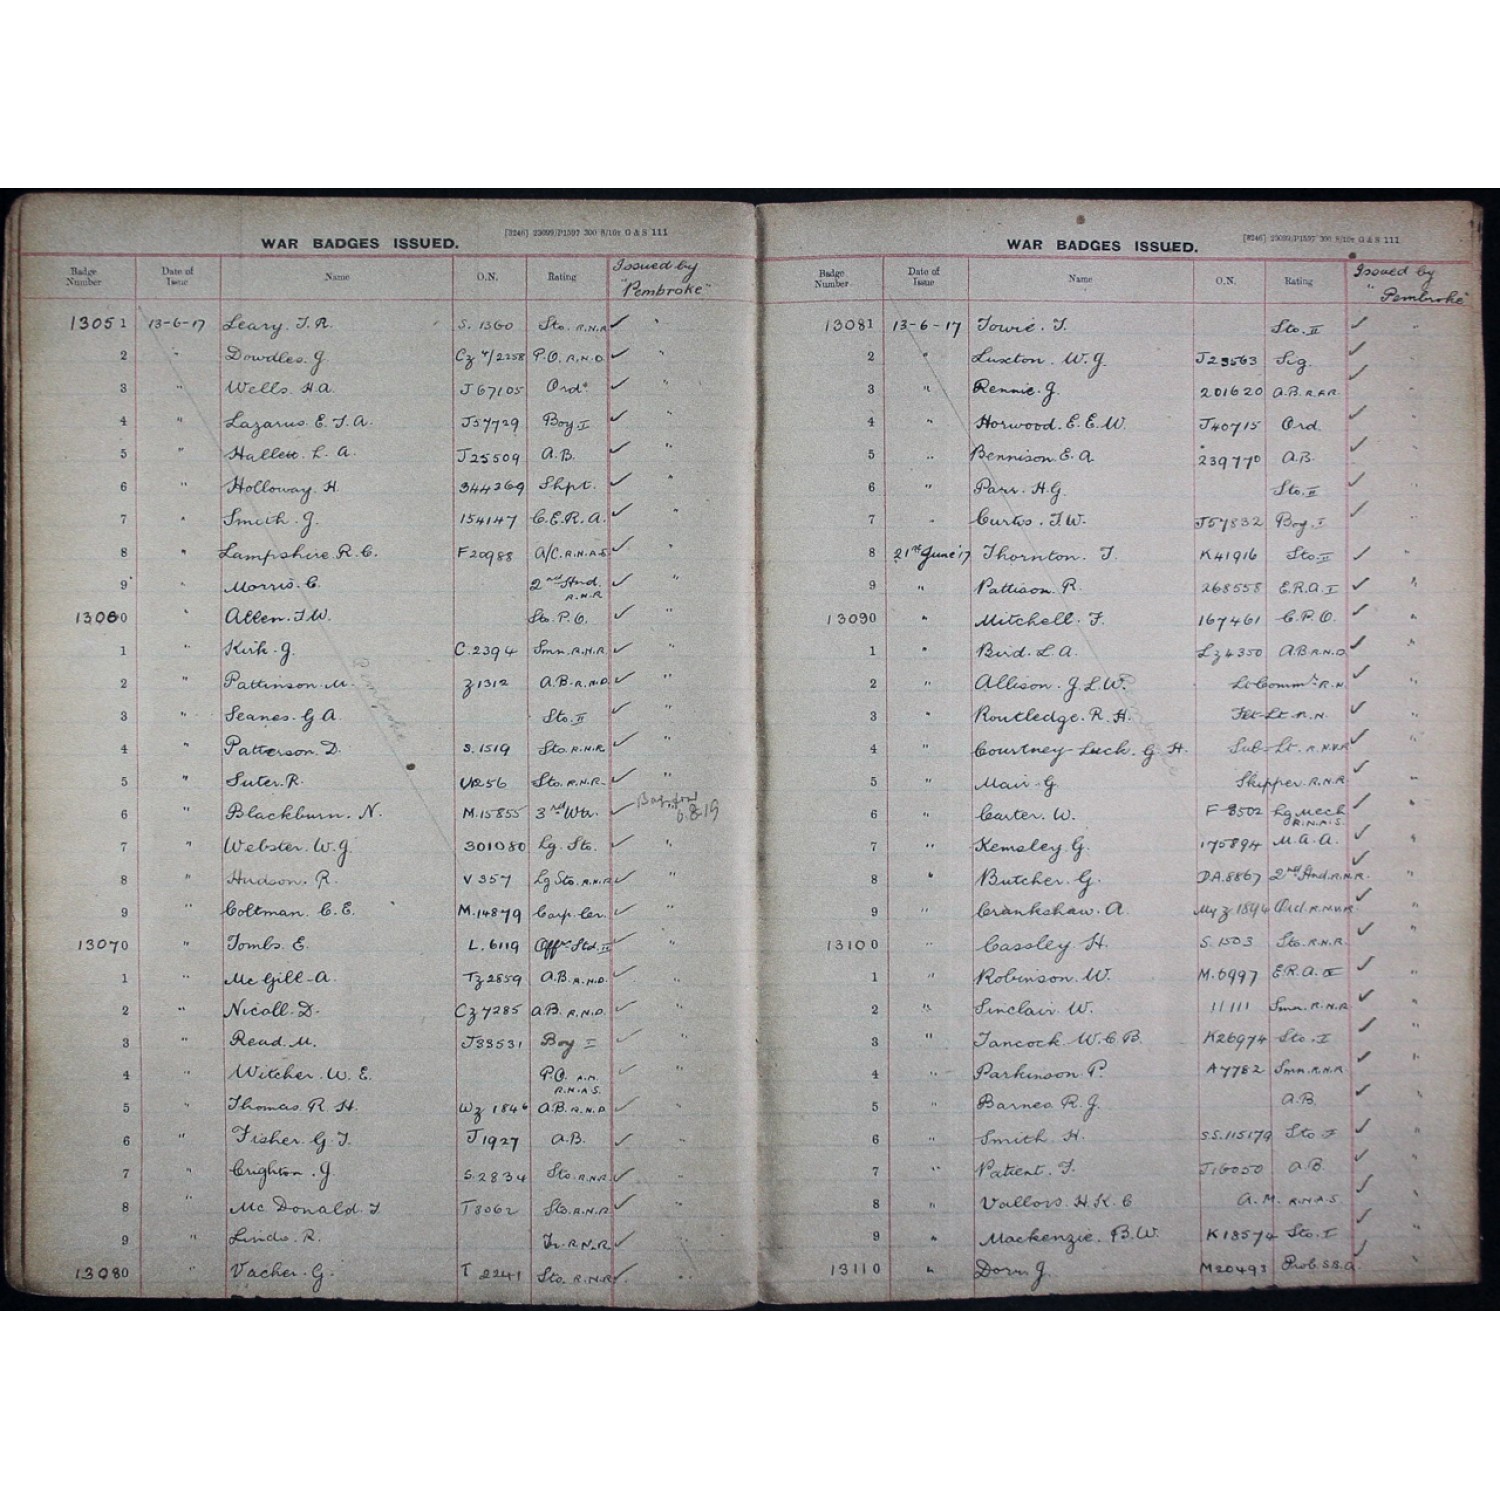 WAR BADGES ISSUED. [8246] 23099/P1597 300 8/16s G & S 111
Badge Number Date of Issue Name O.N. Rating Issued by "Pembroke"
13051 13-6-17 Leary. J. R. S. 1360 Sto. R.N.R ✓ "
2 " Dowdles. G. Cz 4/2258 P.O. R.N.D ✓ "
3 " Wells. H.A. J67105 Ord. ✓ "
4 " Lazarus. E. J. A. J57729 Boy. I ✓ "
5 " Hallett. L. A. J25509 A.B. ✓ "
6 " Holloway. H. 344269 Shpt. ✓ "
7 " Smith. G. 154147 C.E.R.A. ✓ "
8 " Lampshire. R. C. F20988 A/C. R.N.A.S ✓ "
9 " Morris. C. 2nd Hnd. R.N.R ✓ "
13060 " Allen. J.W. Sto. P.O. ✓ "
1 " Kirk. J. C. 2394 Smn. R.N.R ✓ "
2 " Pattinson. M. Z1312 A.B. R.N.D ✓ "
3 " Seanes. G A. Sto. II ✓ "
4 " Patterson. D. S. 1519 Sto. R.N.R ✓ "
5 " Suter. R. V256 Sto. R.N.R. ✓ "
6 " Blackburn. N. M.15855 3rd Wtr. ✓ " 6.8.19
7 " Webster. W.G. 301080 Lg. Sto. ✓ "
8 " Hudson. R. V 357 Lg Sto. R.N.R ✓ "
9 " Coltman. C. E. M.14879 Carp. Cr. ✓ "
13070 " Tombs. E. L. 6119 Offrs Std. II ✓ "
1 " Mc Gill-A. Tz 2859 A.B. R.N.D. ✓ "
2 " Nicoll. D. Cz 7285 A.B. R.N.D. ✓ "
3 " Read. M. J33531 Boy I ✓ "
4 " Witcher. W. E. P.O. A.M. R.N.A.S. ✓ "
5 " Thomas. R. H. Wz 1846 A.B. R.N.D ✓ "
6 " Fisher. G. J. J1927 A.B. ✓ "
7 " Crighton. J. S.2834 Sto. R.N.R ✓ "
8 " Mc Donald. J T3062 Sto. R.N.R ✓ "
9 " Lindo. R. Tr. R.N.R ✓ "
13080 Vacher. G. T 2241 Sto. R.N.R ✓ "
Pembroke
WAR BADGES ISSUED. [8246] 23099/P1597 300 8/16s G & S 111
Badge Number. Date of Issue Name O.N. Rating Issued by "Pembroke"
13081 13-6-17 Towie. J. Sto. II ✓ "
2 " Luxton. W. G. J23563 Sig. ✓
3 " Rennie. G. 201620 A.B. R.F.R. ✓ "
4 " Horwood. E. E. W. J40715 Ord. ✓ "
5 " Bennison. E. A 239770 A.B. ✓ "
6 " Parr. H.G. Sto. II ✓ "
7 " Curtis. J.W. J57832 Boy. I ✓ "
8 21st June '17 Thornton. J. K41916 Sto. II ✓ "
9 " Pattison. R. 268558 E.R.A. I ✓ "
13090 " Mitchell. F. 167461 C.P.O. ✓ "
1 " Bird. L A. Lz4350 A.B R.N.D ✓ "
2 " Allison. G. L.W. Lt. Commr. R.N. ✓ "
3 " Routledge. R. H. Flt-Lt. R.N. ✓ "
4 " Courtney-Luck. G. H. Sub-Lt. R.N.V.R ✓ "
5 " Mair. G Skipper. R.N.R. ✓ "
6 " Carter. W. F 8502 Lg Mech R.N.A.S. ✓ "
7 " Kemsley. G. 175894 M.A.A. ✓ "
8 " Butcher. G. DA.8867 2nd Hnd. R.N.R. ✓ "
9 " Crankshaw. A. My z 1894 Ord. R.N.V.R ✓ "
13100 " Cassley. H. S. 1503 Sto. R.N.R. ✓ "
1 " Robinson. W. M.6997 E.R.A. IV ✓ "
2 " Sinclair. W. 11111 Smn. R.N.R ✓ "
3 " Tancock. W. C. B. K26974 Sto. I ✓ "
4 " Parkinson. P. A7782 Smn. R.N.R. ✓ "
5 " Barnes. R. G. A.B. ✓ "
6 " Smith. H. SS.115179 Sto I ✓ "
7 " Patient. J. J16050 A.B. ✓ "
8 " Vallors. H K. C A.M. R.N.A.S. ✓ "
9 " Mackenzie. B.W. K18574 Sto. I ✓ "
13110 " Dorr. J. M20493 Prob. S.B.A. ✓ "